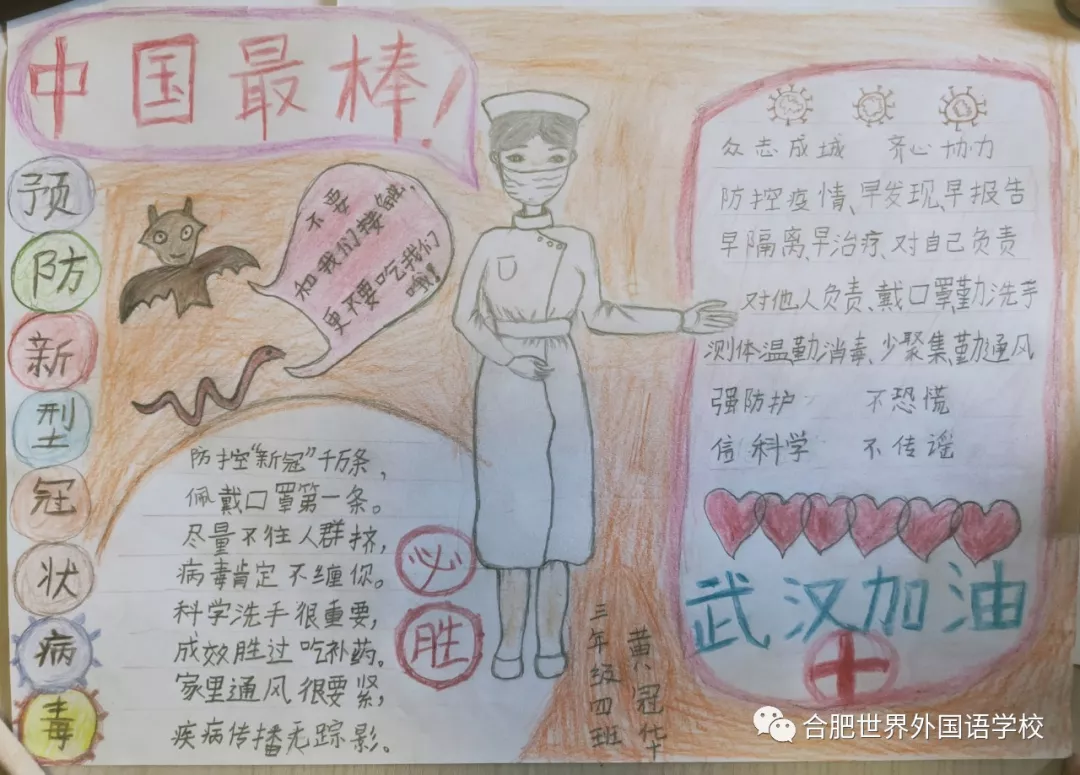 中国最棒！
预防新型冠状病毒
不要
和我们接触，
更不要吃我们
哦！
众志成城 齐心协力
防控疫情、早发现、早报告
早隔离、早治疗、对自己负责
对他人负责、戴口罩、勤洗手
测体温、勤消毒、少聚集、勤通风
强防护 不恐慌
信科学 不传谣
武汉加油
防控“新冠”千万条，
佩戴口罩第一条。
尽量不往人群挤，
病毒肯定不缠你。
科学洗手很重要，
成效胜过吃补药。
家里通风很要紧，
疾病传播无踪影。
必胜
三年级四班
黄冠华
合肥世界外国语学校